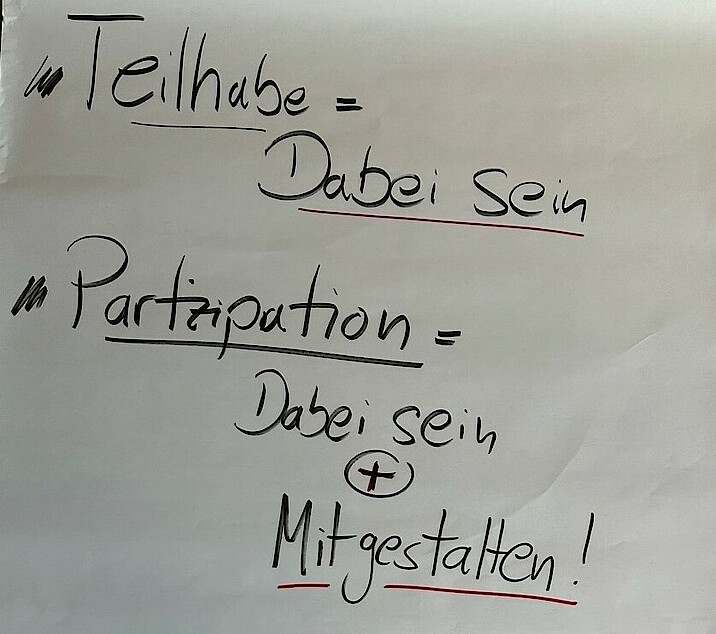 Teilhabe =
Dabei sein
Partizipation =
Dabei sein
+
Mitgestalten!